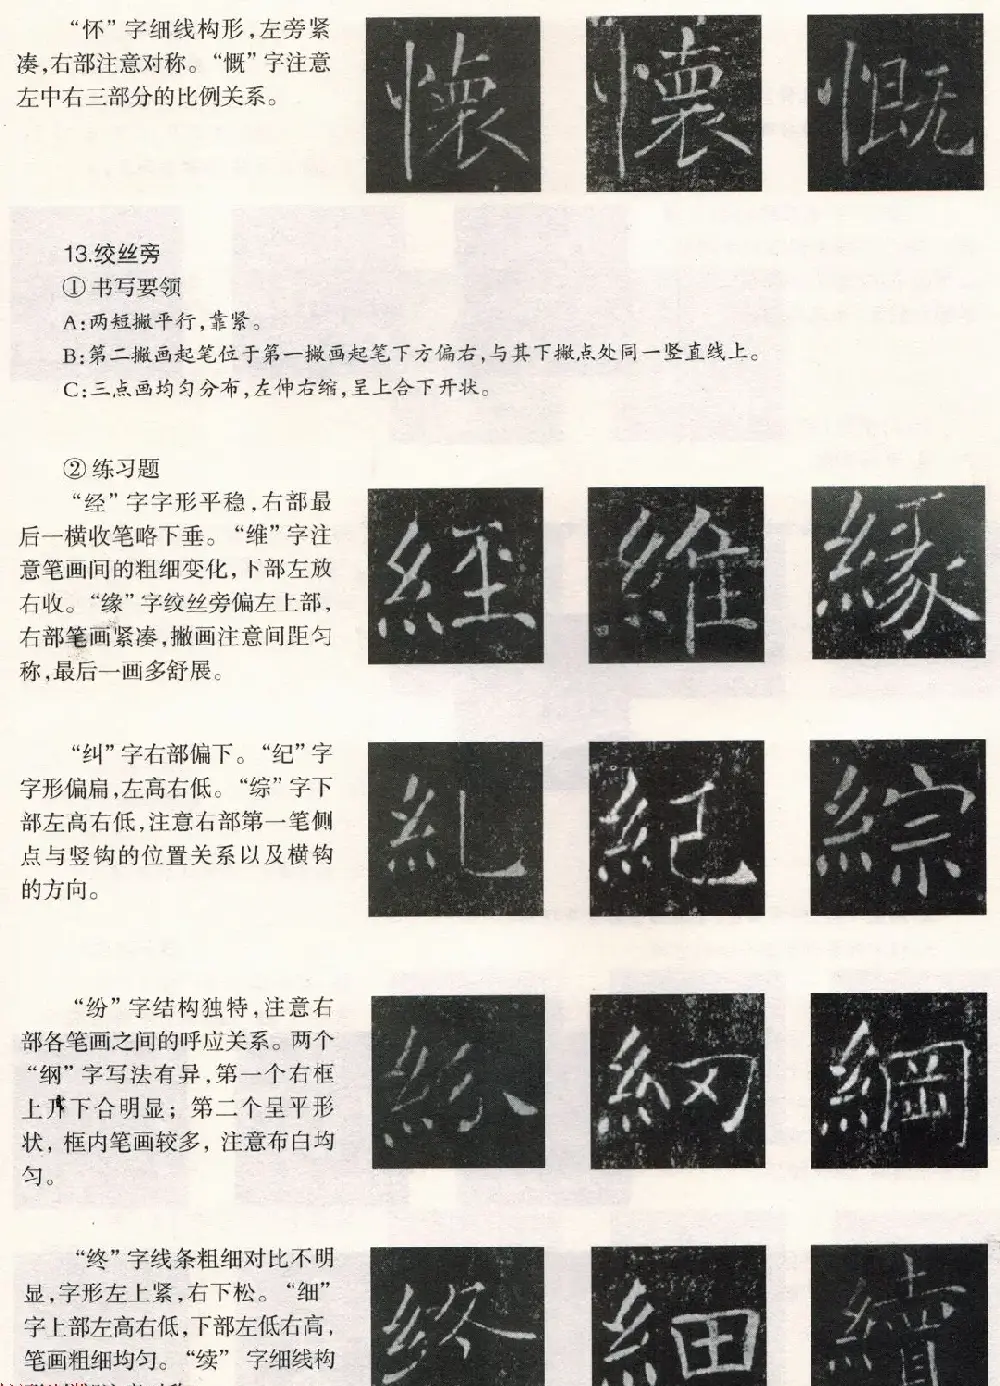 “怀”字细线构形,左旁紧
凑,右部注意对称。“慨”字注意
左中右三部分的比例关系。
懷 懷 慨
13.绞丝旁
① 书写要领
A:两短撇平行,靠紧。
B:第二撇画起笔位于第一撇画起笔下方偏右,与其下撇点处同一竖直线上。
C:三点画均匀分布,左伸右缩,呈上合下开状。
② 练习题
“经”字字形平稳,右部最
后一横收笔略下垂。“维”字注
意笔画间的粗细变化,下部左放
右收。“缘”字绞丝旁偏左上部,
右部笔画紧凑,撇画注意间距匀
称,最后一画多舒展。
經 維 緣
“纠”字右部偏下。“纪”字
字形偏扁,左高右低。“综”字下
部左高右低,注意右部第一笔侧
点与竖钩的位置关系以及横钩
的方向。
紀 綜
“纷”字结构独特,注意右
部各笔画之间的呼应关系。两个
“纲”字写法有异,第一个右框
上开下合明显;第二个呈平形
状,框内笔画较多,注意布白均
匀。
綱
“终”字线条粗细对比不明
显,字形左上紧,右下松。“细”
字上部左高右低,下部左低右高,
笔画粗细均匀。“续”字细线构
終 細 續